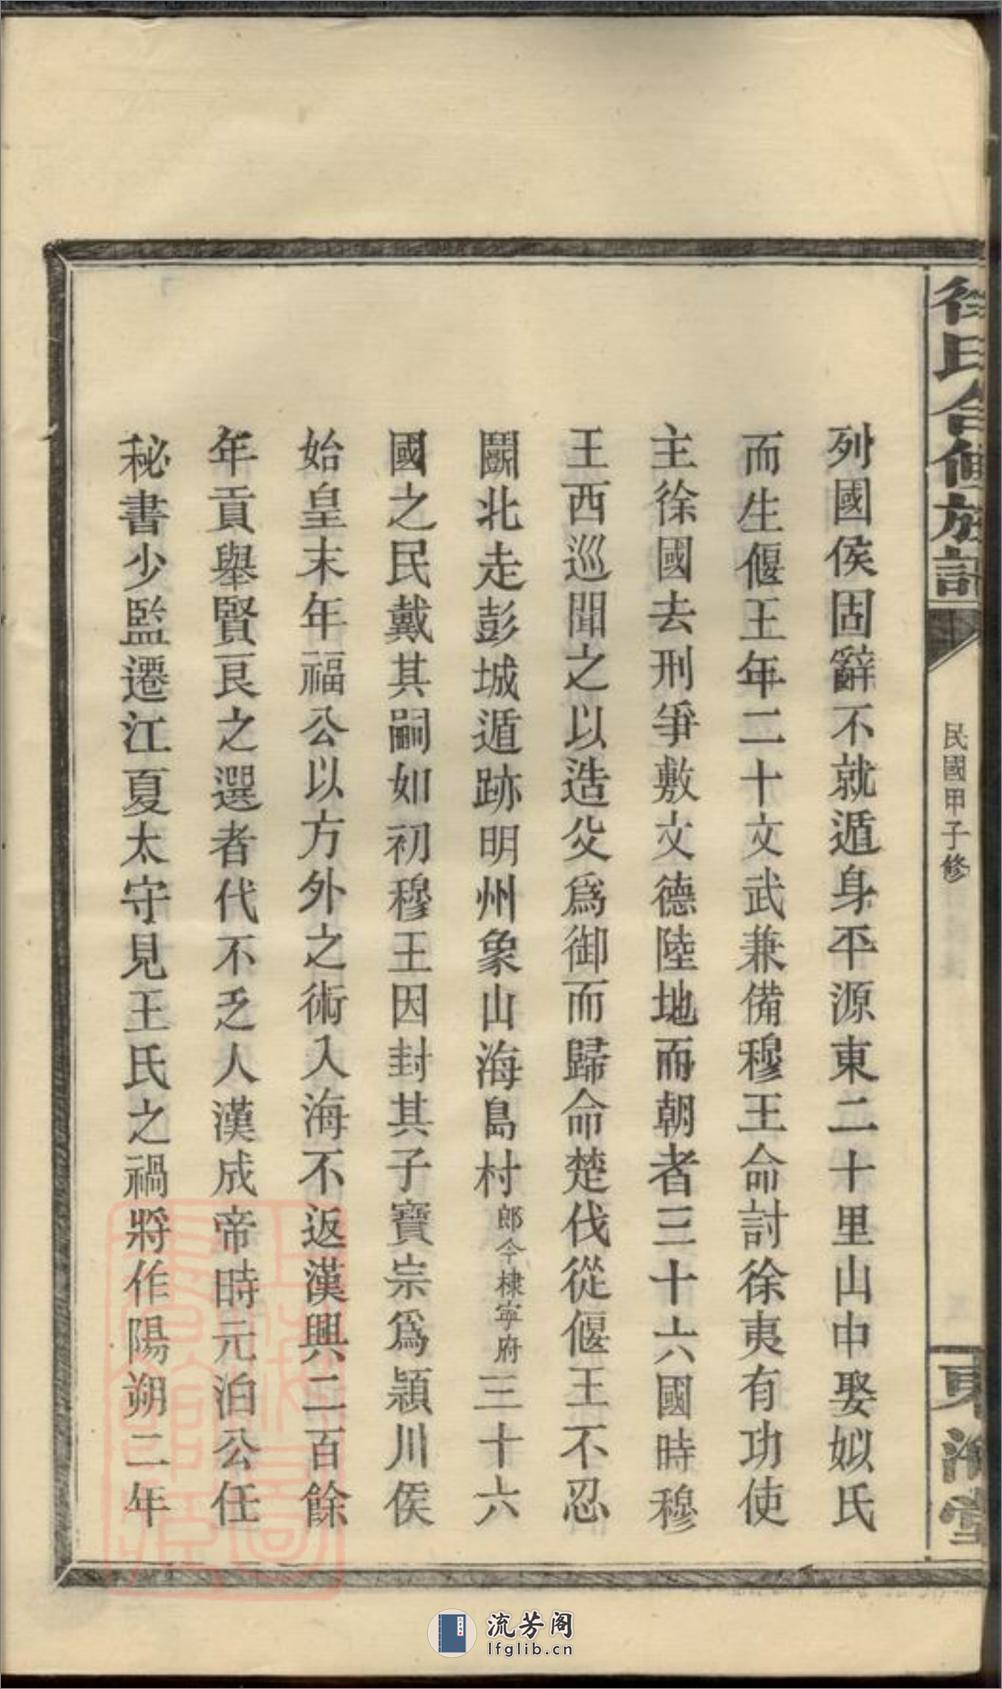 徐氏合修族譜
民國甲子修
東海堂
列國侯固辭不就遁身平源東二十里山中娶姒氏
而生偃王年二十文武兼備穆王命討徐夷有功使
主徐國去刑爭敷文德陸地而朝者三十六國時穆
王西巡聞之以造父爲御而歸命楚伐從偃王不忍
鬭北走彭城遁跡明州象山海島村郎今棣寧府三十六
國之民戴其嗣如初穆王因封其子寶宗爲潁川侯
始皇末年福公以方外之術入海不返漢興二百餘
年貢舉賢良之選者代不乏人漢成帝時元洎公任
秘書少監遷江夏太守見王氏之禍將作陽朔二年
流芳阁
lfglib.cn